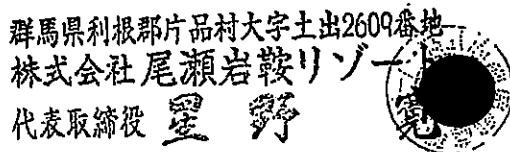 群馬県利根郡片品村大字土出2609番地
株式会社尾瀬岩鞍リゾート
代表取締役 星野 寛